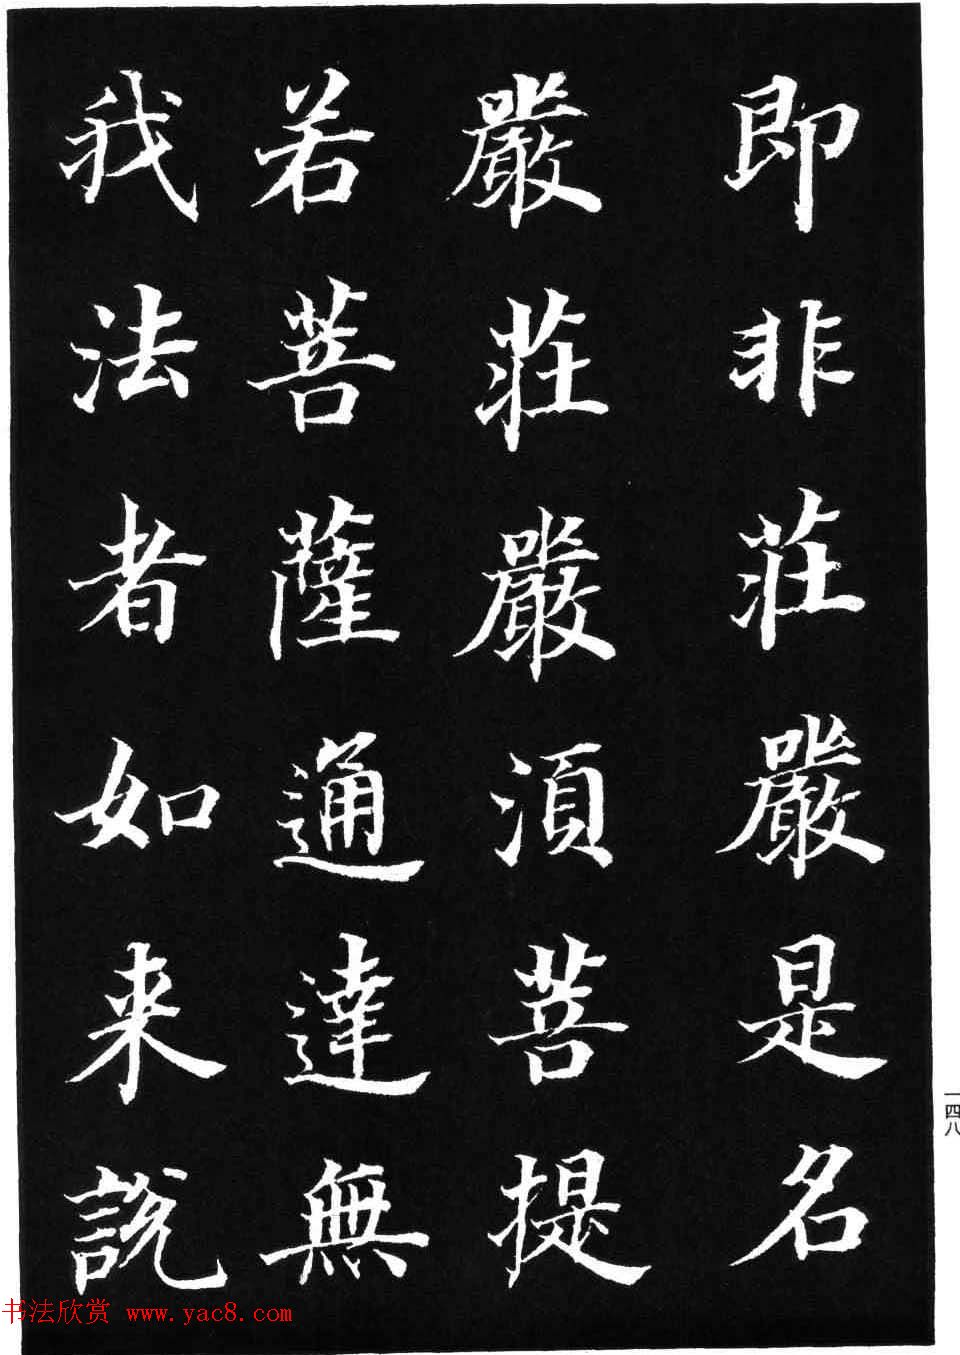 即非莊嚴是名
嚴莊嚴須菩提
若菩薩通達無
我法者如来説
一四八
书法欣赏 www.yac8.com